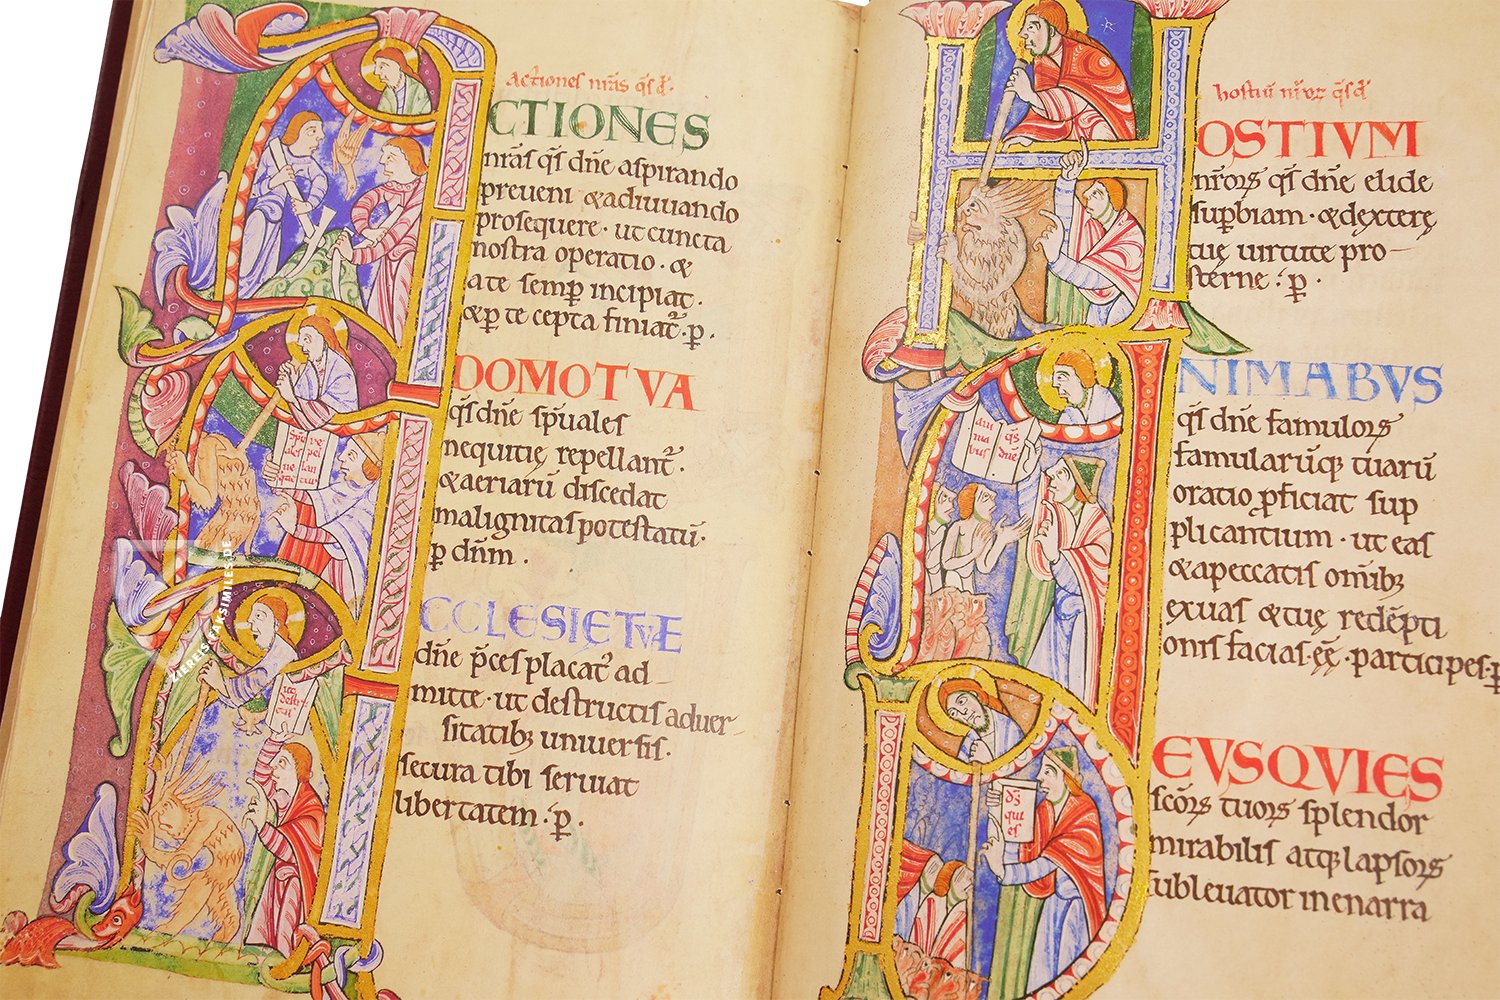 actiones nr̃as q̃s d̃.
CTIONES
nr̃as q̃s dñe aspirando
preueni &adiuuando
prosequere · ut cuncta
nostra operatio · &
ate semp̱ incipiat ·
&p̱ te cepta finiat̃ · p̱ ·
DOMOTVA
q̃s dñe sp̃uales
nequitię repellant̃ ·
&aeriarũ discedat
malignitas potestatũ ·
p̱ dñm .
CCLESIETVE
dñe p̃ces placat᷒ ad
mitte · ut destructis aduer-
sitatib; uniuersis ·
secura tibi seruiat
libertatem · p̱ ·
spũ
ales
ne
quitie
re
pel
lan
tur
destru
ctis
hostiũ nr̃oꝝ q̃s d̃
OSTIVM
nr̃oꝝ q̃s dñe elide
sup̱biam · &dexterę
tuę uirtute pro-
sterne · p̱ ·
NIMABVS
q̃s dñe famuloꝝ
famularũq; tuarũ
oratio ꝓficiat sup
plicantium · ut eas
&apeccatis omĩb;
exuas &tuę redẽpti
onis facias ẽẽ · participes · p̱
ani
ma
bus
q̃s
dñe
EVSQVIES
sc̃oꝝ tuoꝝ splendor
mirabilis atq; lapsoꝝ
subleuator inenarra
d̃s
qui
es
ZIEREIS FAKSIMILES.DE